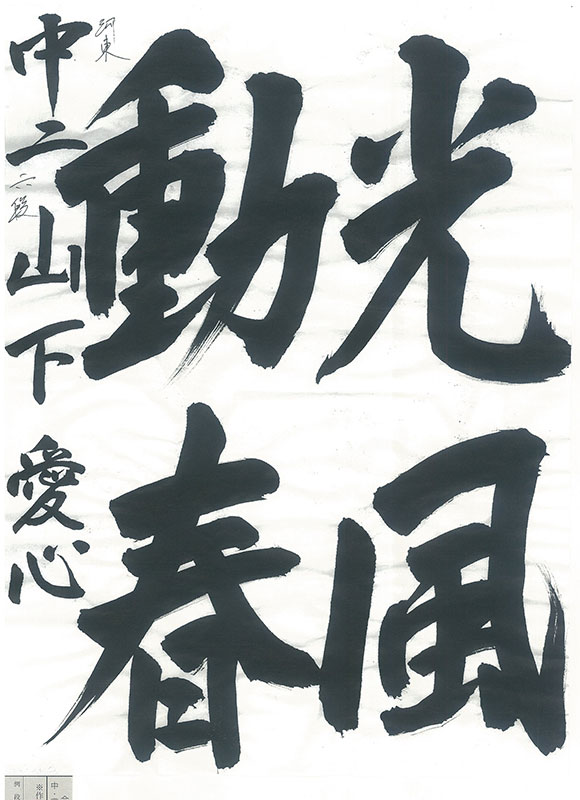 光風
動春
河東
中二 六段 山下 愛心